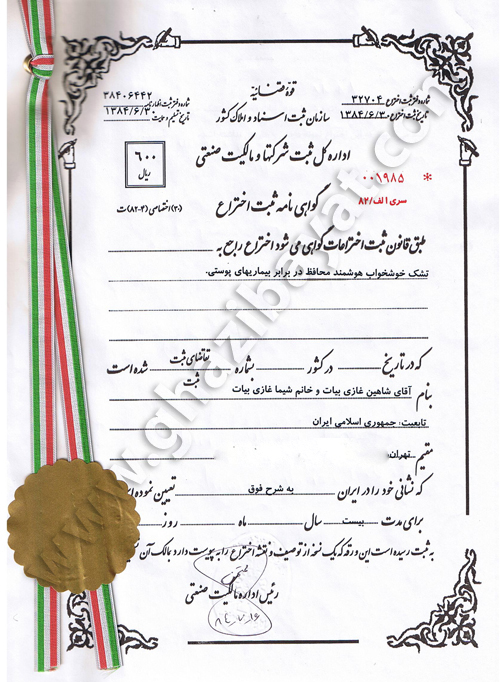 قوهٔ قضائیه
سازمان ثبت اسناد و املاک کشور
شماره دفتر ثبت اختراع ۳۲۷۰۴
تاریخ ثبت اختراع ۱۳۸۴/۶/۳۰
شماره دفتر ثبت اظهارنامه ۳۸۴۰۶۴۴۲
تاریخ تسلیم ۱۳۸۴/۶/۳۰
اداره کل ثبت شرکتها و مالکیت صنعتی
۶۰۰
ریال
* ۰۰۱۹۸۵
سری الف/۸۲
گواهی نامه ثبت اختراع
(۳۰) اختصاصی (۴-۸۲) ث
طبق قانون ثبت اختراعات گواهی می شود اختراع راجع به
تشک خوشخواب هوشمند محافظ در برابر بیماریهای پوستی.
که در تاریخ در کشور بشماره تقاضای ثبت شده است
ثبت
بنام آقای شاهین غازی بیات و خانم شیما غازی بیات
تابعیت: جمهوری اسلامی ایران
مقیم تهران:
که نشانی خود را در ایران به شرح فوق تعیین نموده
برای مدت بیست سال ماه روز
به ثبت رسیده است این ورقه که یک نسخه از توصیف و نقشه اختراع را به پیوست دارد بمالک آن
رئیس اداره مالکیت صنعتی
www.ghazibayat.com